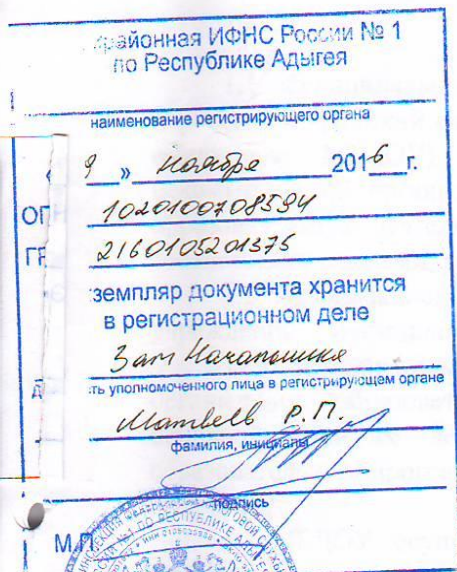 районная ИФНС России № 1
по Республике Адыгея
наименование регистрирующего органа
« 9 » ноября 2016 г.
ОГ 1020100708594
ГР 2160105201375
земпляр документа хранится
в регистрационном деле
Зам Начальника
ть уполномоченного лица в регистрирующем органе
Матвеев Р.П.
фамилия, инициалы
подпись
М.П.